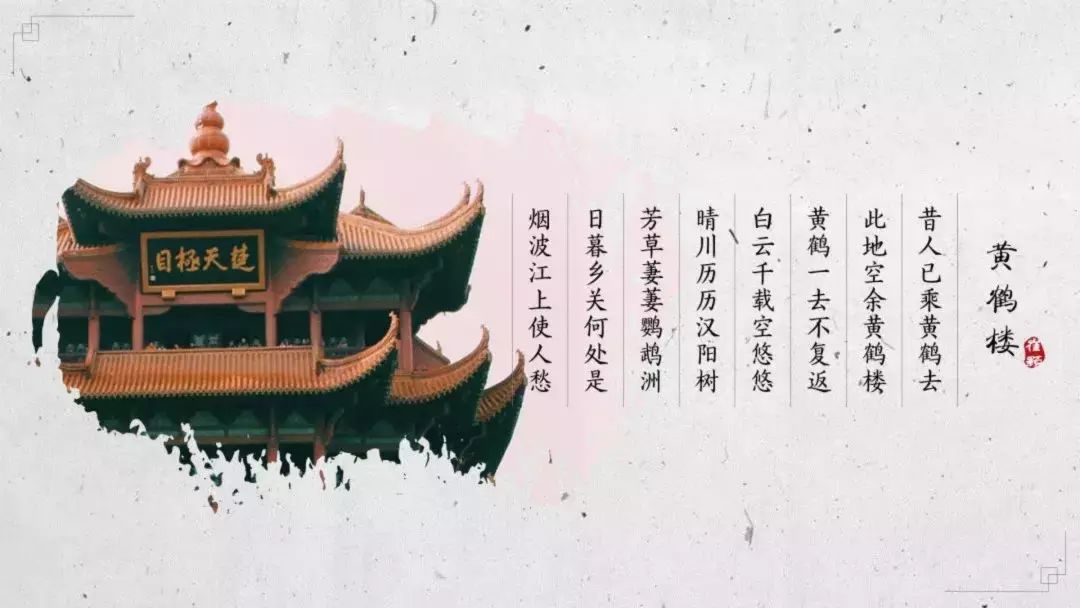 黄鹤楼
崔颢
昔人已乘黄鹤去
此地空余黄鹤楼
黄鹤一去不复返
白云千载空悠悠
晴川历历汉阳树
芳草萋萋鹦鹉洲
日暮乡关何处是
烟波江上使人愁
楚天极目